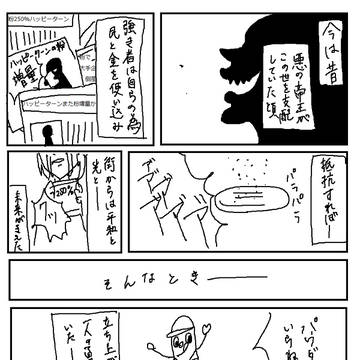 今は昔
悪の帝王が
この世を支配
していた頃
強き者は自らの為
民と金を使い込み
粉250%ハッピーターン
ハッピーターンの粉
増量
ハッピーターンまた粉増量か
抵抗すれば―
パラパラ
街からは平和と
光と―
クッ
未来がきえた
そんなとき―
パウダー
立ち上が
一人の
いた―